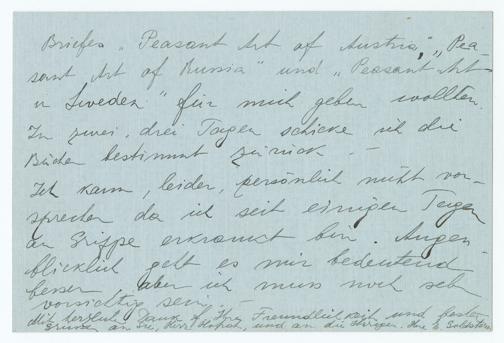 Briefes „Peasant Art of Austria", „Pea-
sant Art of Russia" und „Peasant Art
in Sweden" für mich geben wollten.
In zwei, drei Tagen schicke ich die
Bücher bestimmt zurück. –
Ich kann, leider, persönlich nicht vor-
sprechen da ich seit einigen Tagen
an Grippe erkrankt bin. Augen-
blicklich geht es mir bedeutend
besser, aber ich muss noch sehr
vorsichtig sein. –
Mit herzlich. Dank f. Ihre Freundlichkeit und besten
Grüssen an Sie, Herr und an die Ihrigen. Ihre